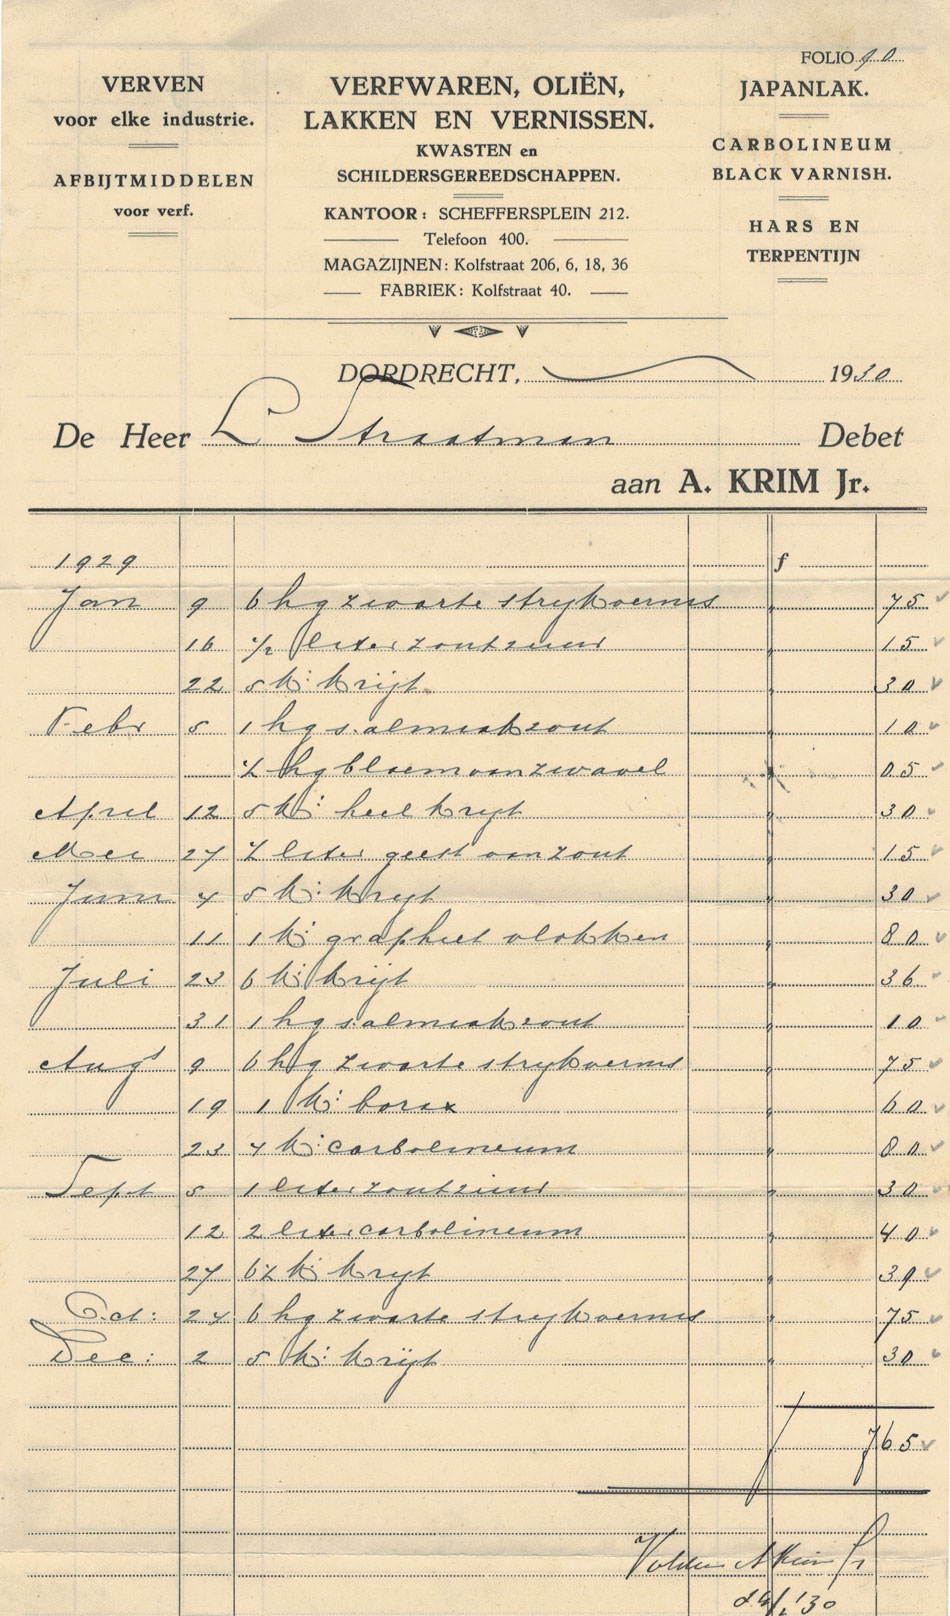 FOLIO 90
VERVEN
voor elke industrie.
AFBIJTMIDDELEN
voor verf.
VERFWAREN, OLIËN,
LAKKEN EN VERNISSEN.
KWASTEN en
SCHILDERSGEREEDSCHAPPEN.
KANTOOR: SCHEFFERSPLEIN 212.
Telefoon 400.
MAGAZIJNEN: Kolfstraat 206, 6, 18, 36
FABRIEK: Kolfstraat 40.
JAPANLAK.
CARBOLINEUM
BLACK VARNISH.
HARS EN
TERPENTIJN
DORDRECHT, 1930
De Heer L Straatman Debet
aan A. KRIM Jr.
1929 f
Jan 9 6 hg zwarte strykvernis " 75
16 ½ liter zoutzuur " 15
22 5 K: Krijt " 30
Febr 5 1 hg salmiakzout " 10
½ hg bloem van zwavel " 05
April 12 5 K: heel kryt " 30
Mei 27 ½ liter geest van zout " 15
Juni 4 5 K: Kryt " 30
11 1 K: graphiet vlokken " 80
Juli 23 6 K: Krijt " 36
31 1 hg salmiakzout " 10
Augs 9 6 hg zwarte strykvernis " 75
19 1 K: borax " 60
23 4 K: carbolineum " 80
Sept 5 1 liter zoutzuur " 30
12 2 liter carbolineum " 40
27 6½ K: Kryt " 39
Oct: 24 6 hg zwarte strykvernis " 75
Dec: 2 5 K: Krijt " 30
f 7 65
Voldaan A Krim Jr